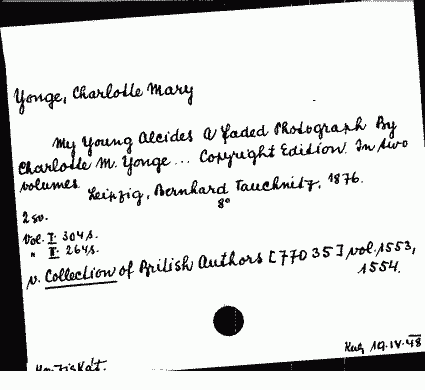 Yonge, Charlotte Mary
My Young Alcides A faded Photograph By
Charlotte M. Yonge ... Copyright Edition. In two
volumes.
Leipzig, Bernhard Tauchnitz, 1876.
8°
2 sv.
Vol. I: 304 s.
" II: 264 s.
v. Collection of British Authors [77035] vol. 1553,
1554.
19.IV.48